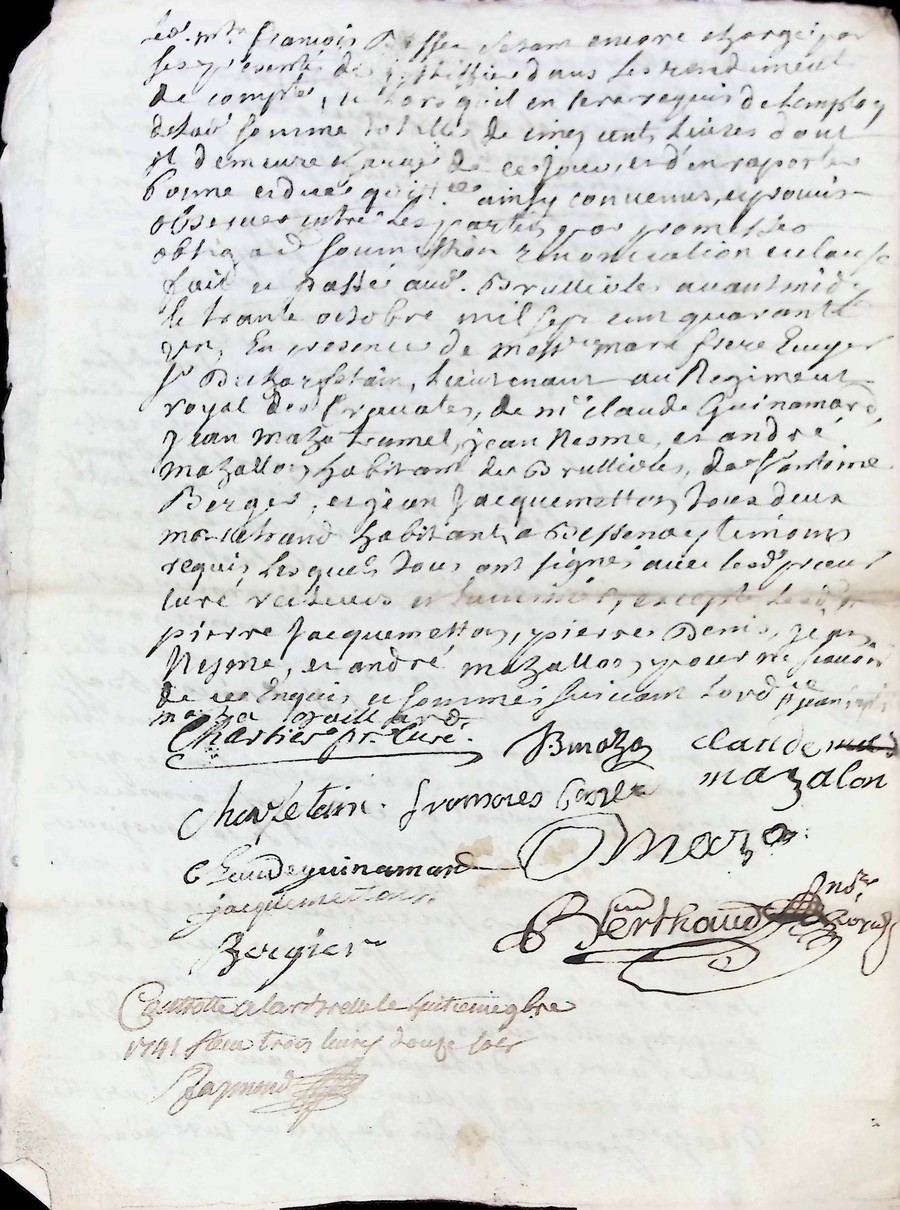 led. mtre françois Besse setant encore chargé par
ses presentes de justiffier dans les rendiment
de compte, et lors qu'il en sera requis de l'employ
de lad. somme totalle de cinq cents livres dont
il demeure chargé de ce jour, et d'en raporter
bonne et due quittce. ainsy convenus, et promis
observer entre les parties par promesses
obligaon. soumission renonciation et clause
fait et passé aud. Brullioles avant midy
le trante octobre mil sept cent quarante
un, En presence de messire marc frere Ecuyer
sr De Charfetain, Lieutenant au Regiment
royal des Cravates, de mr claude Guinamard,
jean maza trumel, jean Nesme, et andré
mazallon habitant de Brullioles, de sr antoine
Berger, et jean Jacquemetton tous deux
marchand habitant a Bessenay temoins
requis, lesquels tous ont signés avec lesd. prieur
curé recteurs et, excepté lesd.
pierre Jacquemetton, pierre Denis, jean
Nesme, et andré mazallon, pour ne scavoir
de ce Enquis et sommés suivant l'ord ce
Chartier pr. Curé. Bmaza claude
mazalon
Charfetain. francoies besse
Claudeguinamard maza
jacquemeton
Bergier Berthaud nore royal
Controllé a larbresle le huitieme 9bre
1741 Recu trois livres douze sols
Raymond